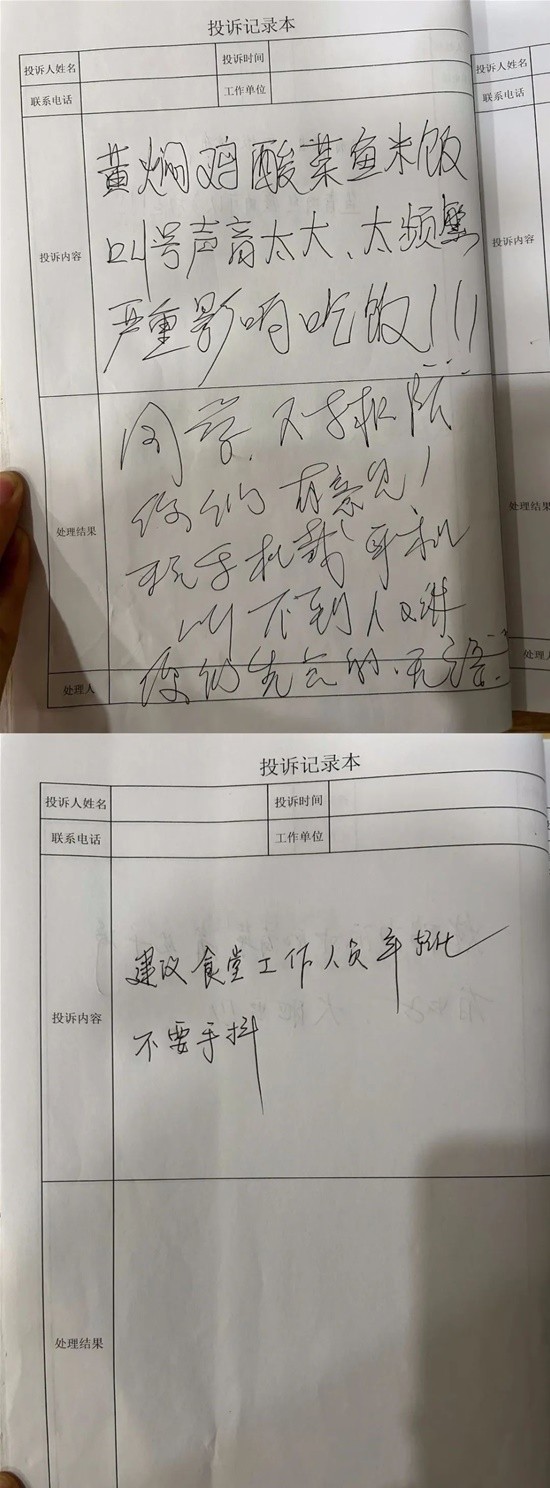 投诉记录本
投诉人姓名 投诉时间
联系电话 工作单位
投诉内容
黄焖鸡酸菜鱼米饭
叫号声音太大、太频繁
严重影响吃饭!!!
处理结果
同学.
你们有意见!
玩手机戴耳机
叫不到人又讲
处理人
你们 的.无语
投诉人姓名
联系电话
投诉内容
处理结果
处理人
投诉记录本
投诉人姓名 投诉时间
联系电话 工作单位
投诉内容
建议食堂工作人员年轻化
不要手抖
处理结果